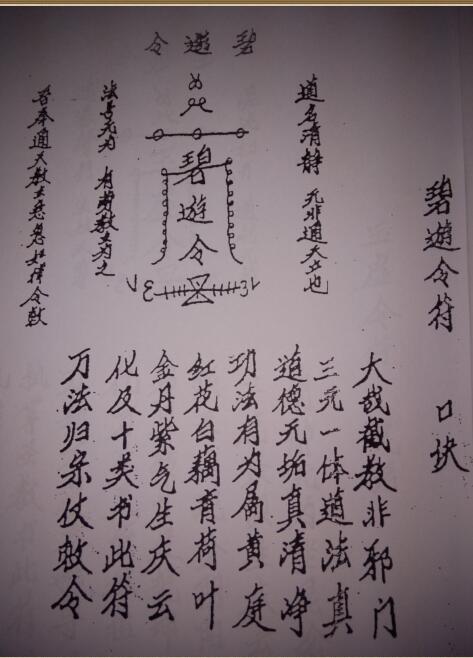 碧遊令符 口诀
碧遊令
道名清静 无非通天也
碧遊令
法言无为 有劳教主为之
吾奉通天教主急急如律令敕
大哉截教非邪门
三元一体道法真
道德无垢真清净
功法有为属黄庭
红花白藕青荷叶
金丹紫气生庆云
化及十类书此符
万法归宗仗敕令